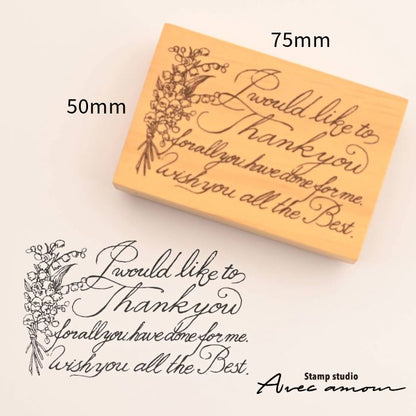 75mm
50mm
I would like to
Thank you
for all you have done for me.
wish you all the Best.
I would like to
Thank you
for all you have done for me.
wish you all the Best.
Stamp studio
Avec amour